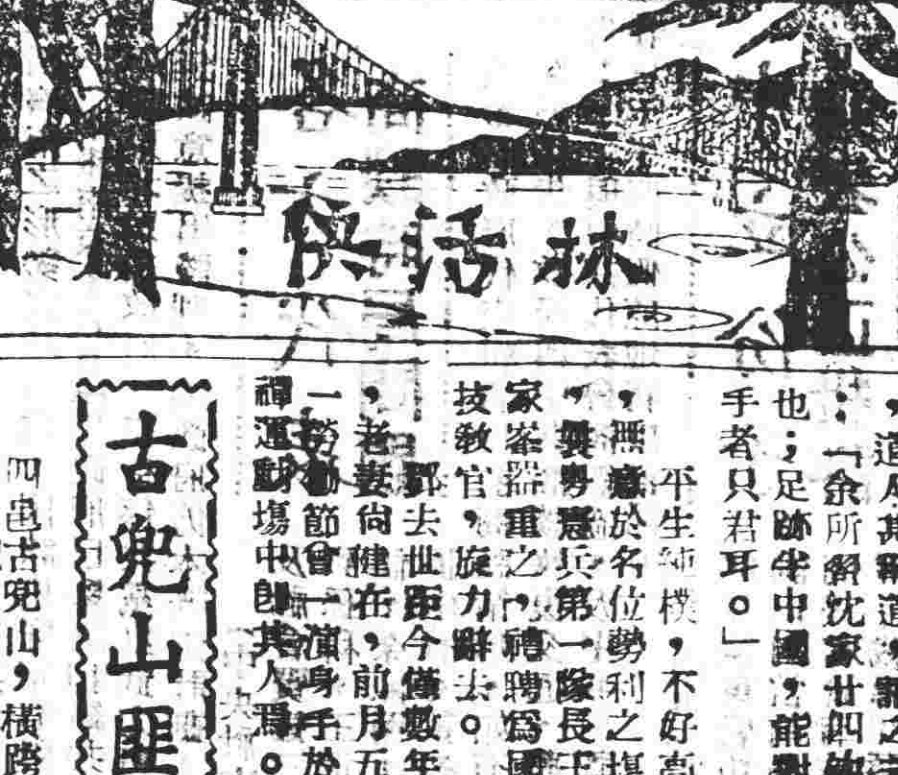 快活林
，道
：「余所習沈家廿四
也；足跡半中國，能
手者只君耳。」
平生純樸，不好
，無意於名位勢利之
，曩粵憲兵第一隊長王
家崟器重之，禮聘爲國
技教官，旋力辭去。
鄧去世距今僅數年
，老妻尙健在，前月五
一勞動節曾一演身手於
禪運動塲中卽其人焉。
古兜山匪
四邑古兜山，橫跨